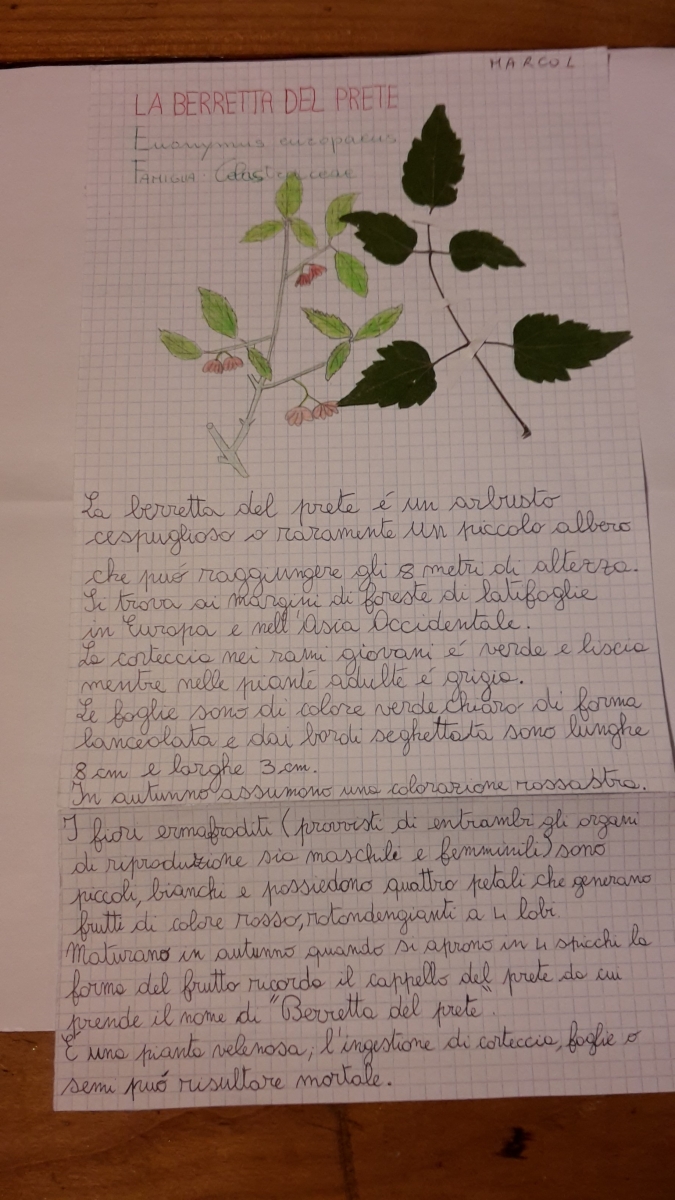 MARCO L
LA BERRETTA DEL PRETE
Euonymus europaeus
FAMIGLIA: Celastraceae
La berretta del prete é un arbusto
cespuglioso o raramente un piccolo albero
che puó raggiungere gli 8 metri di altezza.
Si trova ai margini di foreste di latifoglie
in Europa e nell'Asia Occidentale.
La corteccia nei rami giovani é verde e liscia
mentre nelle piante adulte é grigia.
Le foglie sono di colore verde chiaro di forma
lanceolata e dai bordi seghettata sono lunghe
8 cm e larghe 3 cm.
In autunno assumono una colorazione rossastra.
I fiori ermafroditi (provvisti di entrambi gli organi
di riproduzione sia maschili e femminili) sono
piccoli, bianchi e possiedono quattro petali che generano
frutti di colore rosso, rotondengianti a 4 lobi.
Maturano in autunno quando si aprono in 4 spicchi la
forma del frutto ricorda il cappello del prete da cui
prende il nome di "Berretta del prete".
É una pianta velenosa, l'ingestione di corteccia, foglie o
semi puó risultare mortale.